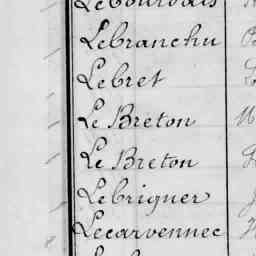 Lebranchu
Lebret
Le Breton
Le Breton
Lebriguer
Lecarvennec